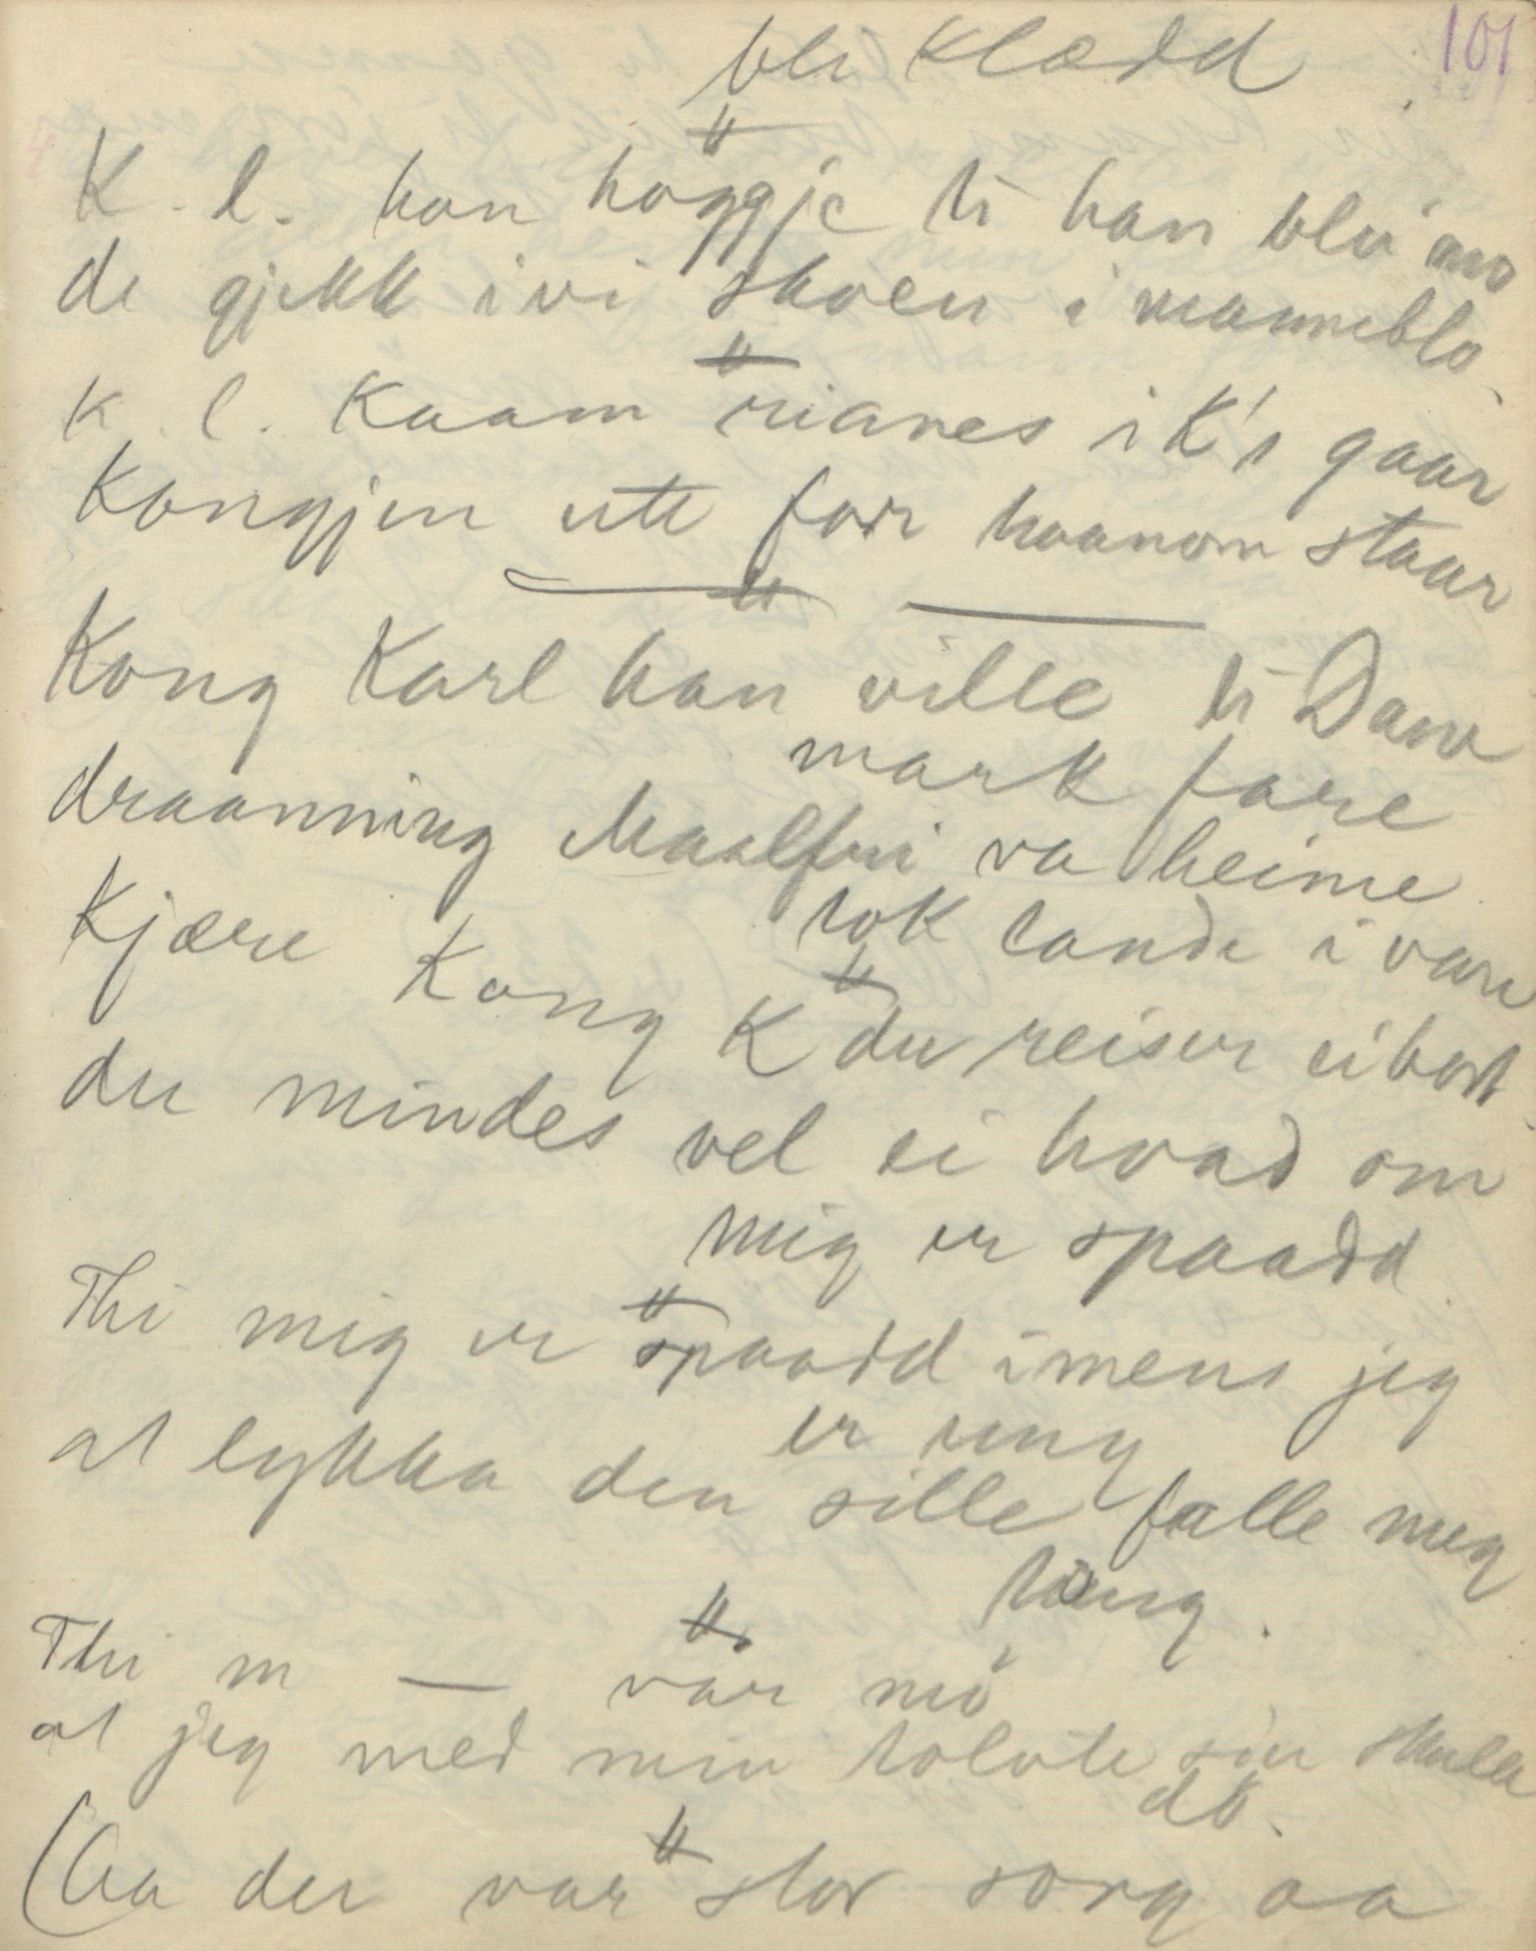 107
bli klædd
"
K. l. han hoggje ti han blei mo
de gjekk ivi skoen i manneblo
"
K. l. Kaam rianes i K's gaar
Kongjen ute forr haanom staar
"
Kong Karl han ville ti Dan
mark fare
draanning Maalfri va heime
tok lande i vare
"
Kjære Kong K du reiser ei bort
du mindes vel ei hvad om
mig er spaadd
"
Thi mig er spaadd imens jeg
er ung
at lykka den sille falle meg
tung.
"
Thi m — var mö
at jeg med min tolvte sin skulle
dö.
"
(Aa der var stor sorg aa